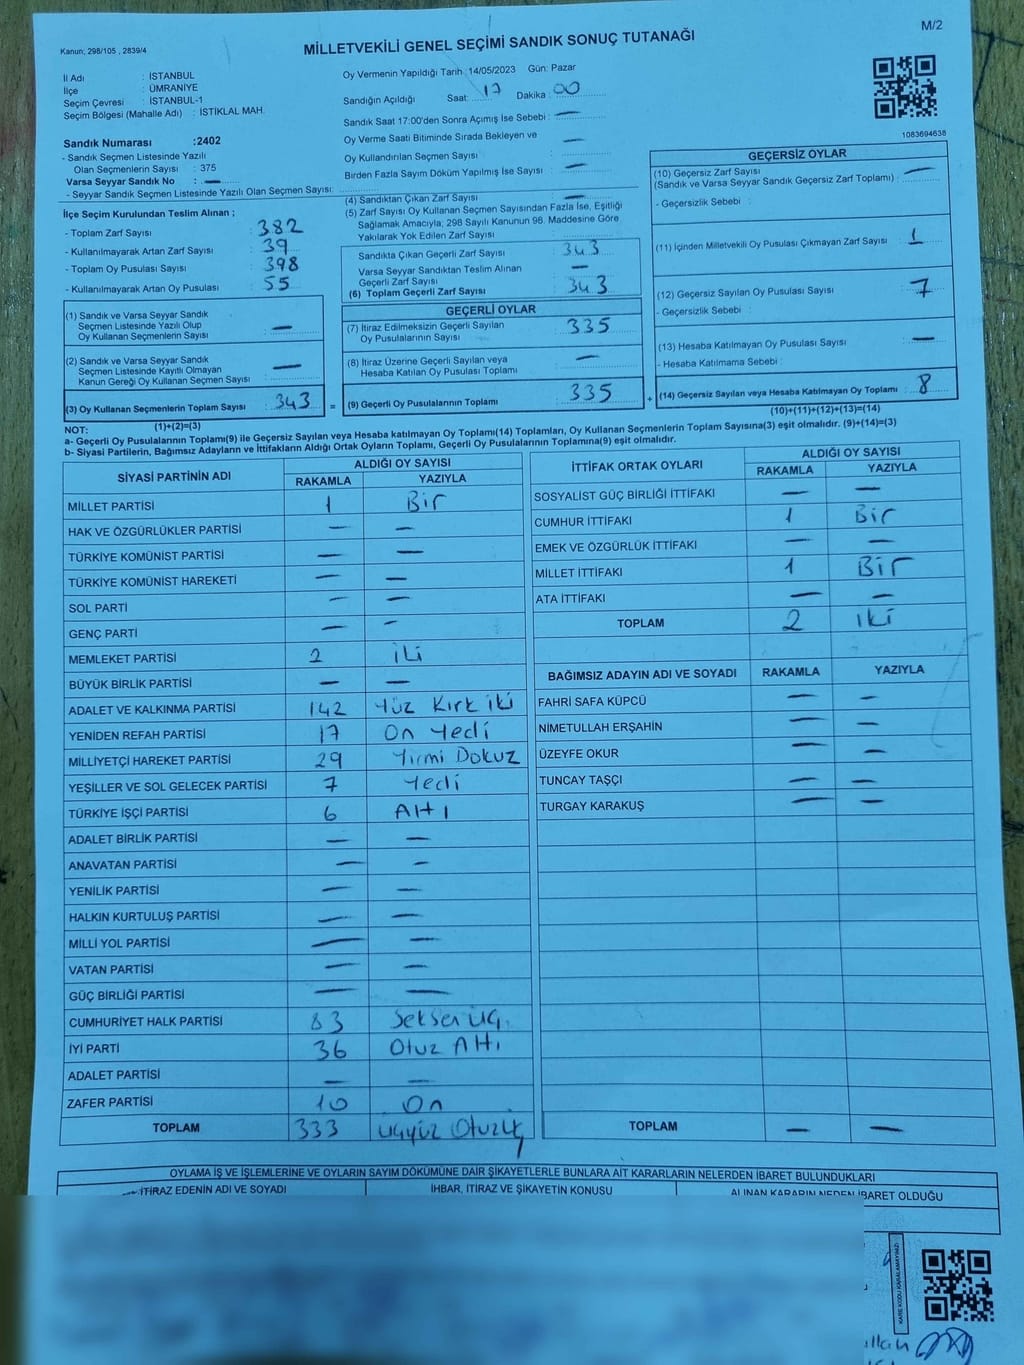 M/2
Kanun; 298/105 , 2839/4
MİLLETVEKİLİ GENEL SEÇİMİ SANDIK SONUÇ TUTANAĞI
İl Adı : İSTANBUL
İlçe : ÜMRANİYE
Seçim Çevresi : İSTANBUL-1
Seçim Bölgesi (Mahalle Adı) : İSTİKLAL MAH.
Sandık Numarası :2402
- Sandık Seçmen Listesinde Yazılı
Olan Seçmenlerin Sayısı : 375
Varsa Seyyar Sandık No : —
- Seyyar Sandık Seçmen Listesinde Yazılı Olan Seçmen Sayısı:
Oy Vermenin Yapıldığı Tarih :14/05/2023 Gün: Pazar
Sandığın Açıldığı Saat: 17 Dakika : 00
Sandık Saat 17:00'den Sonra Açımış İse Sebebi : —
Oy Verme Saati Bitiminde Sırada Bekleyen ve —
Oy Kullandırılan Seçmen Sayısı : —
Birden Fazla Sayım Döküm Yapılmış İse Sayısı : —
1083694638
İlçe Seçim Kurulundan Teslim Alınan ;
- Toplam Zarf Sayısı : 382
- Kullanılmayarak Artan Zarf Sayısı : 39
- Toplam Oy Pusulası Sayısı : 398
- Kullanılmayarak Artan Oy Pusulası : 55
(1) Sandık ve Varsa Seyyar Sandık
Seçmen Listesinde Yazılı Olup
Oy Kullanan Seçmenlerin Sayısı : —
(2) Sandık ve Varsa Seyyar Sandık
Seçmen Listesinde Kayıtlı Olmayan
Kanun Gereği Oy Kullanan Seçmen Sayısı : —
(3) Oy Kullanan Seçmenlerin Toplam Sayısı : 343
(1)+(2)=(3)
(4) Sandıktan Çıkan Zarf Sayısı : —
(5) Zarf Sayısı Oy Kullanan Seçmen Sayısından Fazla İse, Eşitliği
Sağlamak Amacıyla; 298 Sayılı Kanunun 98. Maddesine Göre
Yakılarak Yok Edilen Zarf Sayısı :
Sandıkta Çıkan Geçerli Zarf Sayısı : 343
Varsa Seyyar Sandıktan Teslim Alınan
Geçerli Zarf Sayısı : —
(6) Toplam Geçerli Zarf Sayısı : 343
GEÇERLİ OYLAR
(7) İtiraz Edilmeksizin Geçerli Sayılan
Oy Pusulalarının Sayısı : 335
(8) İtiraz Üzerine Geçerli Sayılan veya
Hesaba Katılan Oy Pusulası Toplamı : —
= (9) Geçerli Oy Pusulalarının Toplamı : 335 +
GEÇERSİZ OYLAR
(10) Geçersiz Zarf Sayısı
(Sandık ve Varsa Seyyar Sandık Geçersiz Zarf Toplamı) : —
- Geçersizlik Sebebi :
(11) İçinden Milletvekili Oy Pusulası Çıkmayan Zarf Sayısı : 1
(12) Geçersiz Sayılan Oy Pusulası Sayısı : 7
- Geçersizlik Sebebi :
(13) Hesaba Katılmayan Oy Pusulası Sayısı : —
- Hesaba Katılmama Sebebi :
(14) Geçersiz Sayılan veya Hesaba Katılmayan Oy Toplamı : 8
(10)+(11)+(12)+(13)=(14)
NOT:
a- Geçerli Oy Pusulalarının Toplamı(9) ile Geçersiz Sayılan veya Hesaba katılmayan Oy Toplamı(14) Toplamları, Oy Kullanan Seçmenlerin Toplam Sayısına(3) eşit olmalıdır. (9)+(14)=(3)
b- Siyasi Partilerin, Bağımsız Adayların ve İttifakların Aldığı Ortak Oyların Toplamı, Geçerli Oy Pusulalarının Toplamına(9) eşit olmalıdır.
SİYASİ PARTİNİN ADI ALDIĞI OY SAYISI
RAKAMLA YAZIYLA
MİLLET PARTİSİ 1 Bir
HAK VE ÖZGÜRLÜKLER PARTİSİ — —
TÜRKİYE KOMÜNİST PARTİSİ — —
TÜRKİYE KOMÜNİST HAREKETİ — —
SOL PARTİ — —
GENÇ PARTİ — —
MEMLEKET PARTİSİ 2 iki
BÜYÜK BİRLİK PARTİSİ — —
ADALET VE KALKINMA PARTİSİ 142 Yüz Kırk iki
YENİDEN REFAH PARTİSİ 17 On Yedi
MİLLİYETÇİ HAREKET PARTİSİ 29 Yirmi Dokuz
YEŞİLLER VE SOL GELECEK PARTİSİ 7 Yedi
TÜRKİYE İŞÇİ PARTİSİ 6 Altı
ADALET BİRLİK PARTİSİ — —
ANAVATAN PARTİSİ — —
YENİLİK PARTİSİ — —
HALKIN KURTULUŞ PARTİSİ — —
MİLLİ YOL PARTİSİ — —
VATAN PARTİSİ — —
GÜÇ BİRLİĞİ PARTİSİ — —
CUMHURİYET HALK PARTİSİ 83 Seksen üç.
İYİ PARTİ 36 Otuz Altı
ADALET PARTİSİ — —
ZAFER PARTİSİ 10 On
TOPLAM 333 üçyüz Otuzüç
İTTİFAK ORTAK OYLARI ALDIĞI OY SAYISI
RAKAMLA YAZIYLA
SOSYALİST GÜÇ BİRLİĞİ İTTİFAKI — —
CUMHUR İTTİFAKI 1 Bir
EMEK VE ÖZGÜRLÜK İTTİFAKI — —
MİLLET İTTİFAKI 1 Bir
ATA İTTİFAKI — —
TOPLAM 2 iki
BAĞIMSIZ ADAYIN ADI VE SOYADI RAKAMLA YAZIYLA
FAHRİ SAFA KÜPCÜ — —
NİMETULLAH ERŞAHİN — —
ÜZEYFE OKUR — —
TUNCAY TAŞÇI — —
TURGAY KARAKUŞ — —
TOPLAM — —
OYLAMA İŞ VE İŞLEMLERİNE VE OYLARIN SAYIM DÖKÜMÜNE DAİR ŞİKAYETLERLE BUNLARA AİT KARARLARIN NELERDEN İBARET BULUNDUKLARI
İTİRAZ EDENİN ADI VE SOYADI İHBAR, İTİRAZ VE ŞİKAYETİN KONUSU ALINAN KARARIN NEDEN İBARET OLDUĞU
KARE KODU KARALAMAYINIZ!